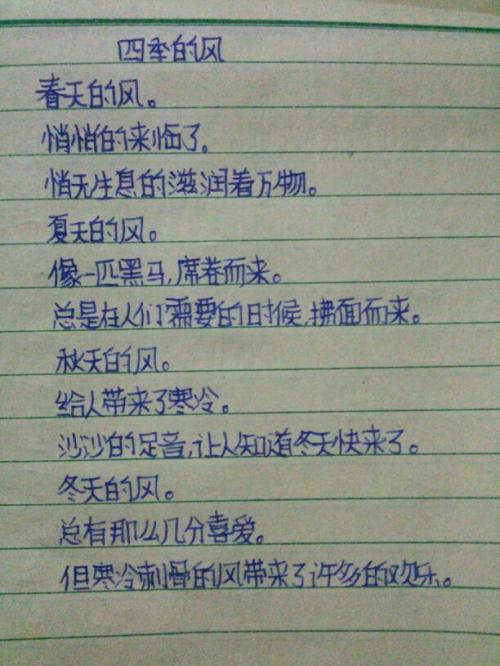 四季的风
春天的风。
悄悄的来临了。
悄无生息的滋润着万物。
夏天的风。
像一匹黑马,席卷而来。
总是在人们需要的时候,拂面而来。
秋天的风。
给人带来了寒冷。
沙沙的足音,让人知道冬天快来了。
冬天的风。
总有那么几分喜爱。
但寒冷刺骨的风带来了许多的欢乐。